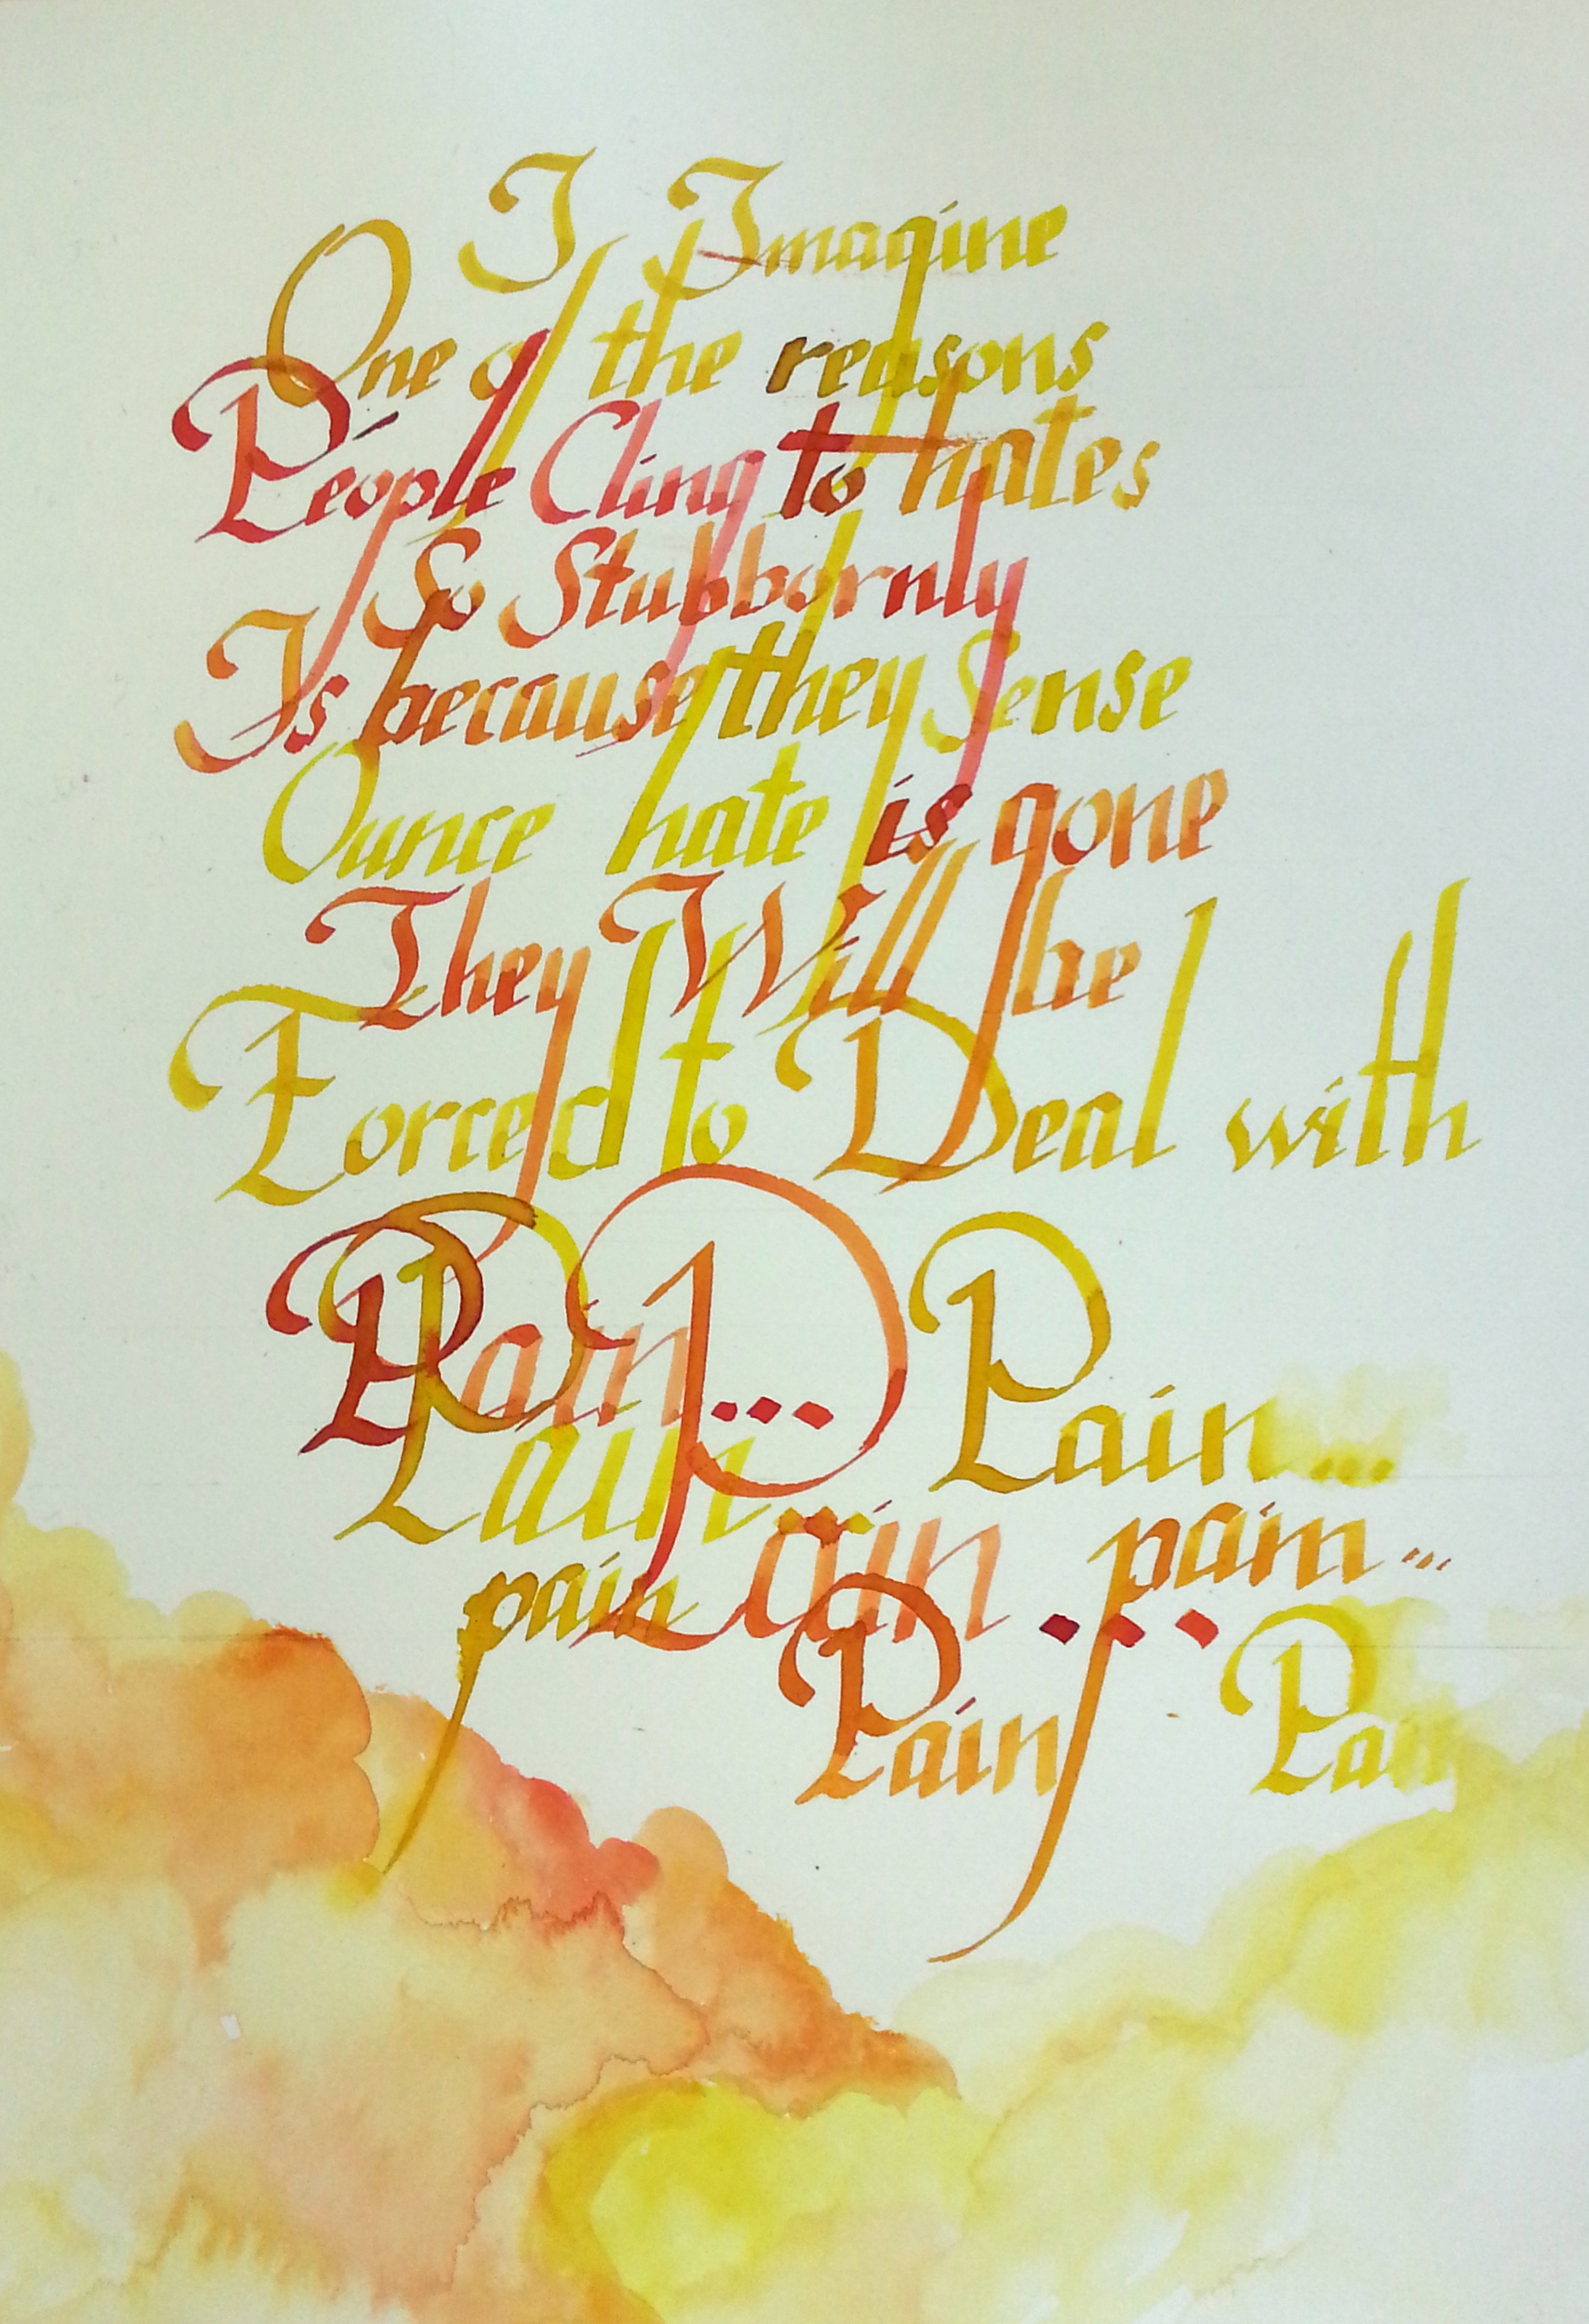 I Imagine
One of the reasons
People Cling to hates
So Stubbornly
Is because they Sense
Ounce hate is gone
They Will be
Forced to Deal with
Pain... Pain...
Pain Pain... pain...
pain
Pain Pain